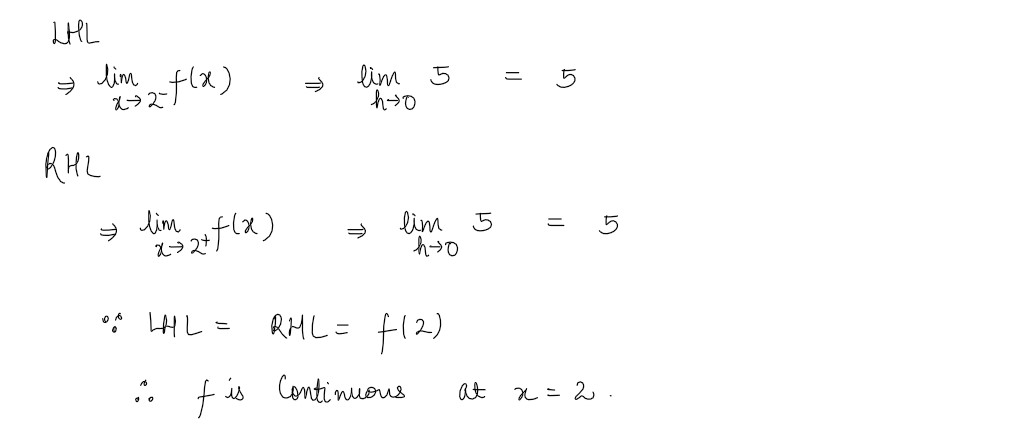 LHL
⇒ lim x→2⁻ f(x) ⇒ lim h→0 5 = 5
RHL
⇒ lim x→2⁺ f(x) ⇒ lim h→0 5 = 5
∵ LHL = RHL = f(2)
∴ f is Continuous at x = 2 .